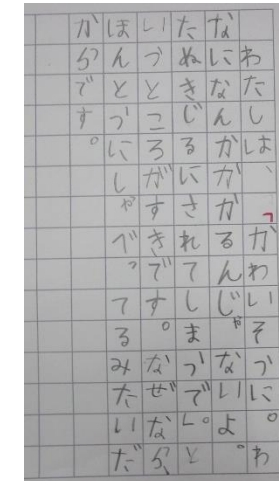 わたしは、「かわいそうに。わ
なになんかかかるんじゃないよ。
たぬきじるにされてしまうで。」と
いうところがすきです。なぜなら、
ほんとうにしゃべってるみたいだ
からです。